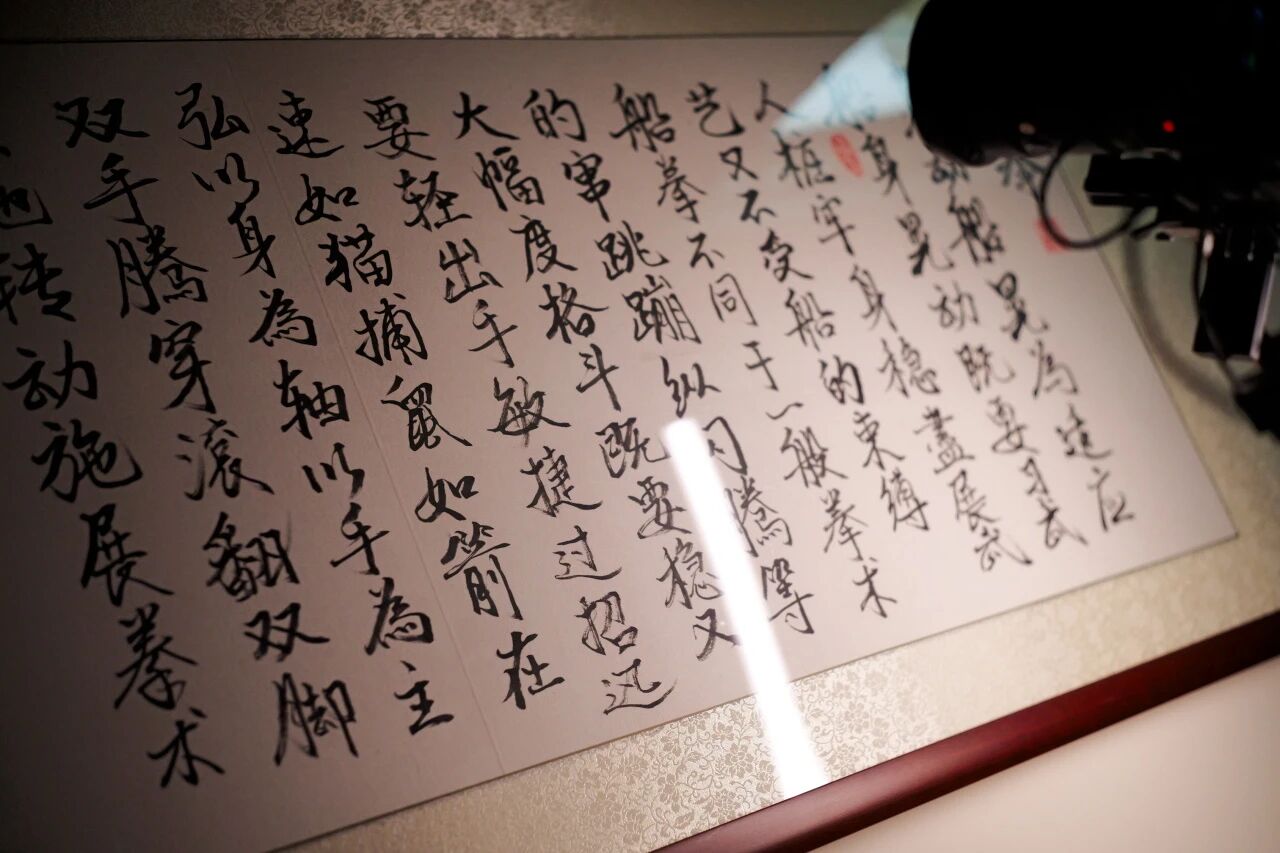 动船晃為适应
身晃动既要习武
人框牢身稳盡展武
艺又不受船的束缚
船拳不同于一般拳术
的串跳蹦纵闪腾等
大幅度格斗既要稳又
要轻出手敏捷过招迅
速如猫捕鼠如箭在
弘以身為轴以手為主
双手腾穿滚翻双脚
转动施展拳术